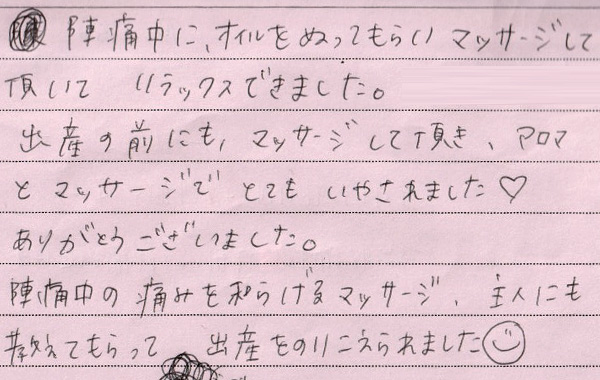 陣痛中に、オイルをぬってもらい マッサージして
頂いて リラックスできました。
出産の前にも、マッサージして頂き、アロマ
と マッサージで とても いやされました♡
ありがとうございました。
陣痛中の 痛みを和らげる マッサージ、主人にも
教えてもらって 出産をのりこえられました☺